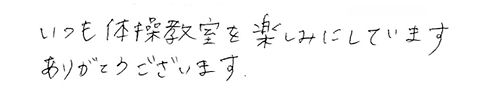 いつも体操教室を楽しみにしています
ありがとうございます.